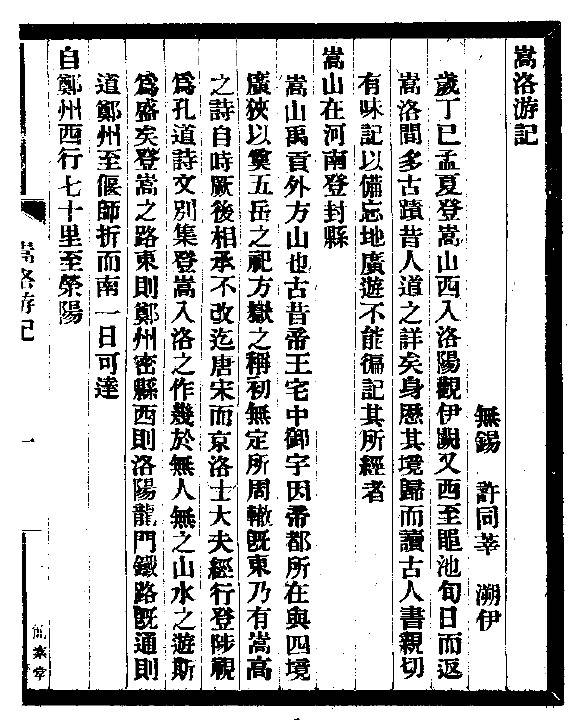 嵩洛游記
無錫　許同莘　溯伊
歲丁巳孟夏登嵩山西入洛陽觀伊闕又西至黽池旬日而返
嵩洛間多古蹟昔人道之詳矣身歷其境歸而讀古人書親切
有味記以備忘地廣遊不能徧記其所經者
嵩山在河南登封縣
嵩山禹貢外方山也古昔帝王宅中御宇因帝都所在與四境
廣狹以奠五岳之祀方嶽之稱初無定所周轍旣東乃有嵩高
之詩自時厥後相承不改迄唐宋而京洛士大夫經行登陟視
為孔道詩文別集登嵩入洛之作幾於無人無之山水之遊斯
為盛矣登嵩之路東則鄭州密縣西則洛陽龍門鐵路旣通則
道鄭州至偃師折而南一日可達
自鄭州西行七十里至滎陽
嵩洛游記
一
簡素堂